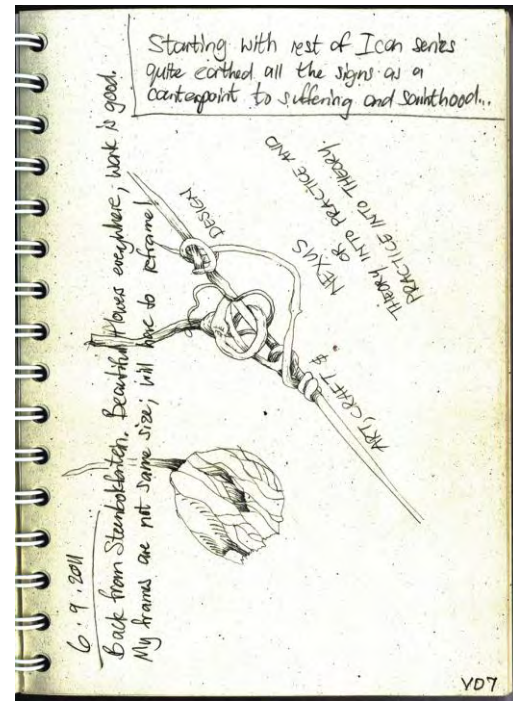 Starting with rest of Icon series
quite earthed all the signs as a
counterpoint to suffering and sainthood...
6.9.2011
Back from Steinbokfontein. Beautiful flowers everywhere; work is good.
My frames are not same size; will have to reframe!
DESIGN
NEXUS
OR PRACTICE AND
THEORY INTO PRACTICE AND
PRACTICE INTO THEORY
ART, CRAFT &
VD7